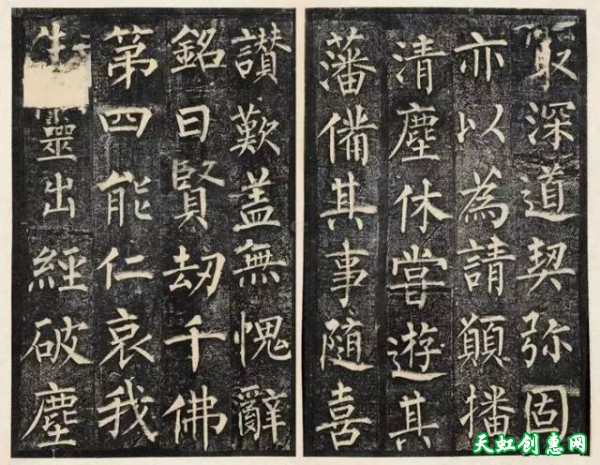 深道契弥固
亦以為請願播
清塵休甞遊其
藩備其事随喜
讃歎盖無愧辭
銘曰賢劫千佛
第四能仁哀我
生靈出經破塵
天虹创惠网